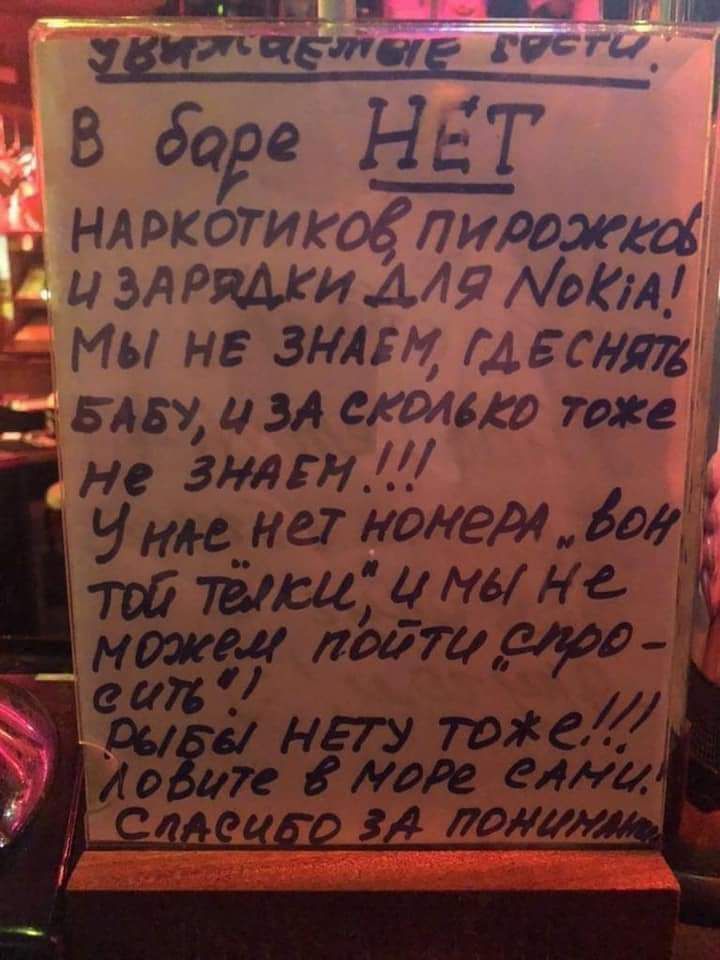 Уважаемые гости!
В баре НЕТ
НАРКОТИКОВ, ПИРОЖКОВ
И ЗАРЯДКИ ДЛЯ NOKiA!
МЫ НЕ ЗНАЕМ, ГДЕ СНЯТЬ
БАБУ, И ЗА СКОЛЬКО тоже
не ЗНАЕМ!!!
У НАС НЕТ НОМЕРА „вон
той тёлки“, и мы не
можем пойти „спро-
сить“!
Рыбы НЕТУ тоже!!!
Ловите в море САМИ!
СПАСИБО ЗА понимание